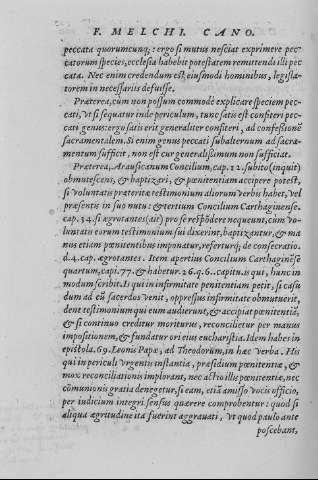 F. MELCHI. CANO.
peccata quorumcunq;: ergo si mutus nesciat exprimere pec-
catorum species, ecclesia habebit potestatem remittendi illi pec
cata. Nec enim credendum est, eiusmodi hominibus, legisla-
torem in necessariis defuisse.
Præterea, cum non possum commodè explicare speciem pec-
cati, vt si sequatur inde periculum, tunc satis est confiteri pec-
cati genus: ergo satis erit generaliter confiteri, ad confessionẽ
sacramentalem. Si enim genus peccati subalternum ad sacra-
mentum sufficit, non est cur generalissimum non sufficiat.
Præterea, Arausicanum Concilium, cap. 12. subito (inquit)
obmutescens, & baptizari, & pœnitentiam accipere potest,
si voluntatis præteritæ testimonium aliorum verbis habet, vel
præsentis in suo nutu: & tertium Concilium Carthaginense.
cap. 34. si ægrotantes (ait) pro se respõdere nequeunt, cùm vo-
luntatis eorum testimonium sui dixerint, baptizantur, & ma
nus etiam pœnitentibus imponatur, referturq; de consecratio.
d. 4. cap. ægrotantes. Item apertius Concilium Carthaginẽse
quartum, capi. 77. & habetur. 26. q. 6. capitu. is qui, hunc in
modum scribit. Is qui in infirmitate penitentiam petit, si casu
dum ad eũ sacerdos venit, oppressus infirmitate obmutuerit,
dent testimonium qui eum audierunt, & accipiat pœnitentiã,
& si continuo creditur moriturus, reconcilietur per manus
impositionem, & fundatur ori eius eucharistia. Idem habes in
epistola. 69. Leonis Papæ, ad Theodorum, in hæc verba. His
qui in periculi vrgentis instantia, præsidium pœnitentiæ, &
mox reconciliationis implorant, nec actio illis pœnitentiæ, nec
cõmunionis gratia denegetur, si eam, etiã amisso vocis officio,
per indicium integri sensus quærere comprobentur: quod si
aliqua ægritudine ita fuerint aggrauati, vt quod paulo ante
poscebant,